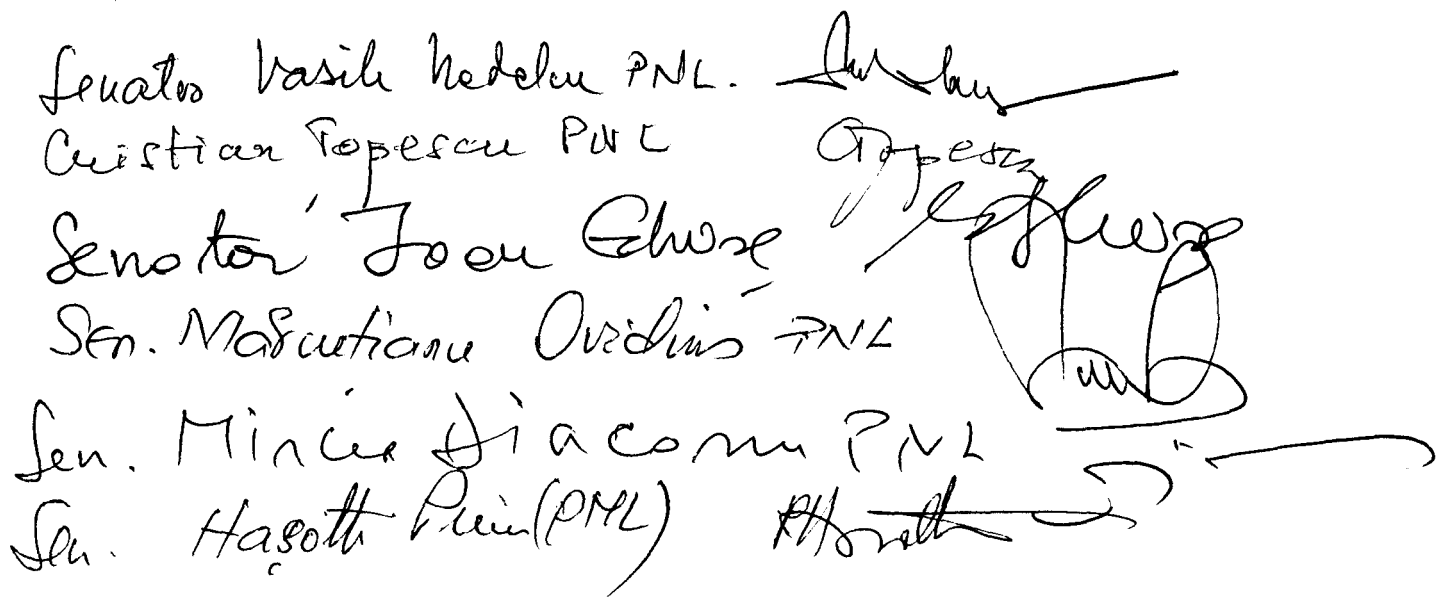 Senator Vasile Nedelcu PNL.
Cristian Țopescu PNL CȚopescu
Senator Ioan Ghișe Ghișe
Sen. Mărcuțianu Ovidius PNL
Sen. Mircea Diaconu PNL
Sen. Hașotti Puiu (PNL)